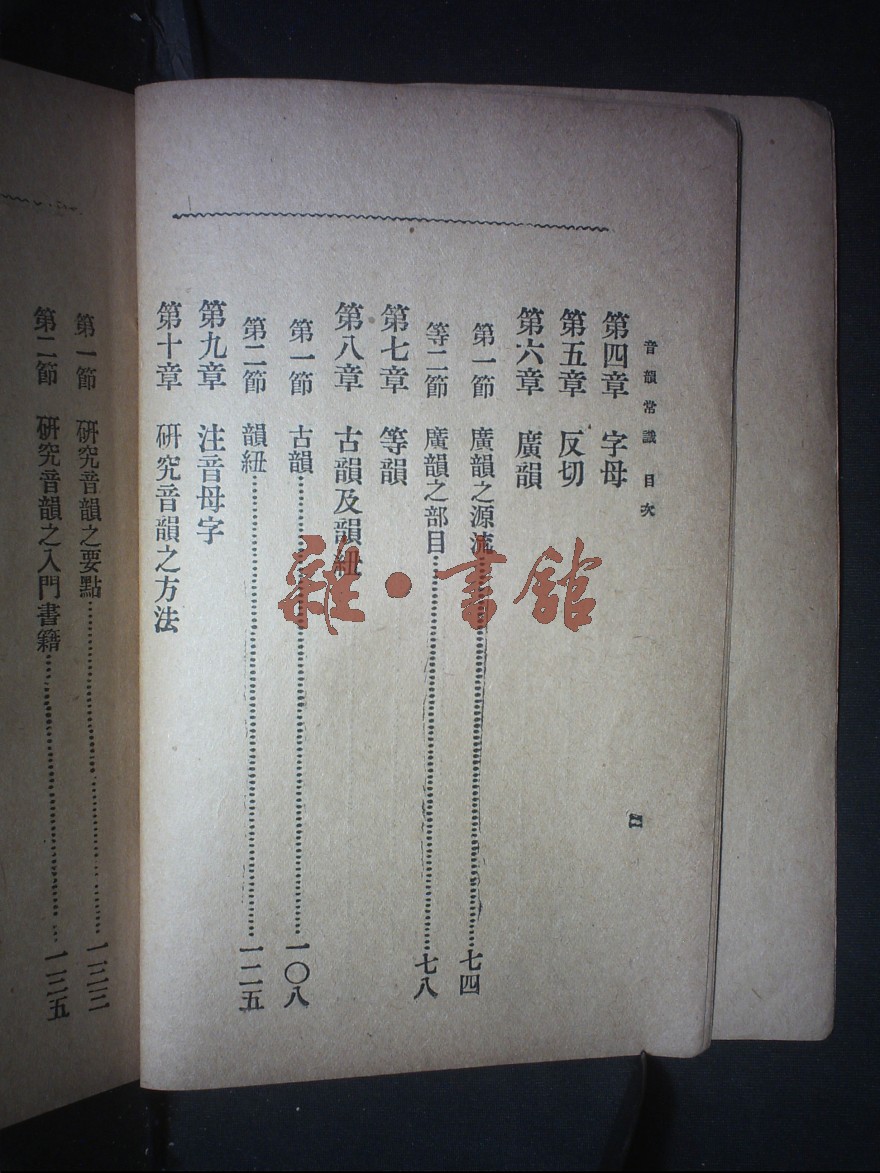 音韻常識 目次
二
第四章 字母
第五章 反切
第六章 廣韻
第一節 廣韻之源流……七四
等二節 廣韻之部目……七八
第七章 等韻
第八章 古韻及韻紐
第一節 古韻……一〇八
第二節 韻紐……一二五
第九章 注音母字
第十章 硏究音韻之方法
第一節 硏究音韻之要點……一三三
第二節 硏究音韻之入門書籍……一三五
雜·書館